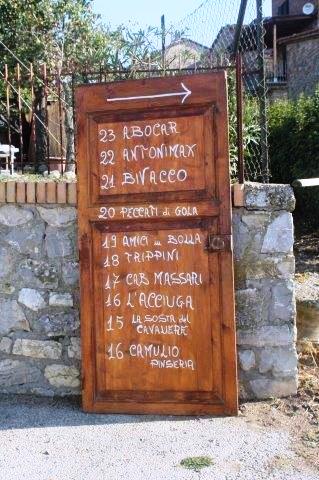 23 ABOCAR
22 ANTONIMAX
21 BIVACCO
20 PECCATI di GOLA
19 AMICI in BOLLA
18 TRIPPINI
17 CAB MASSARI
16 L'ACCIUGA
15 LA SOSTA del
CAVALIERE
16 CAMULIO
PINSERIA